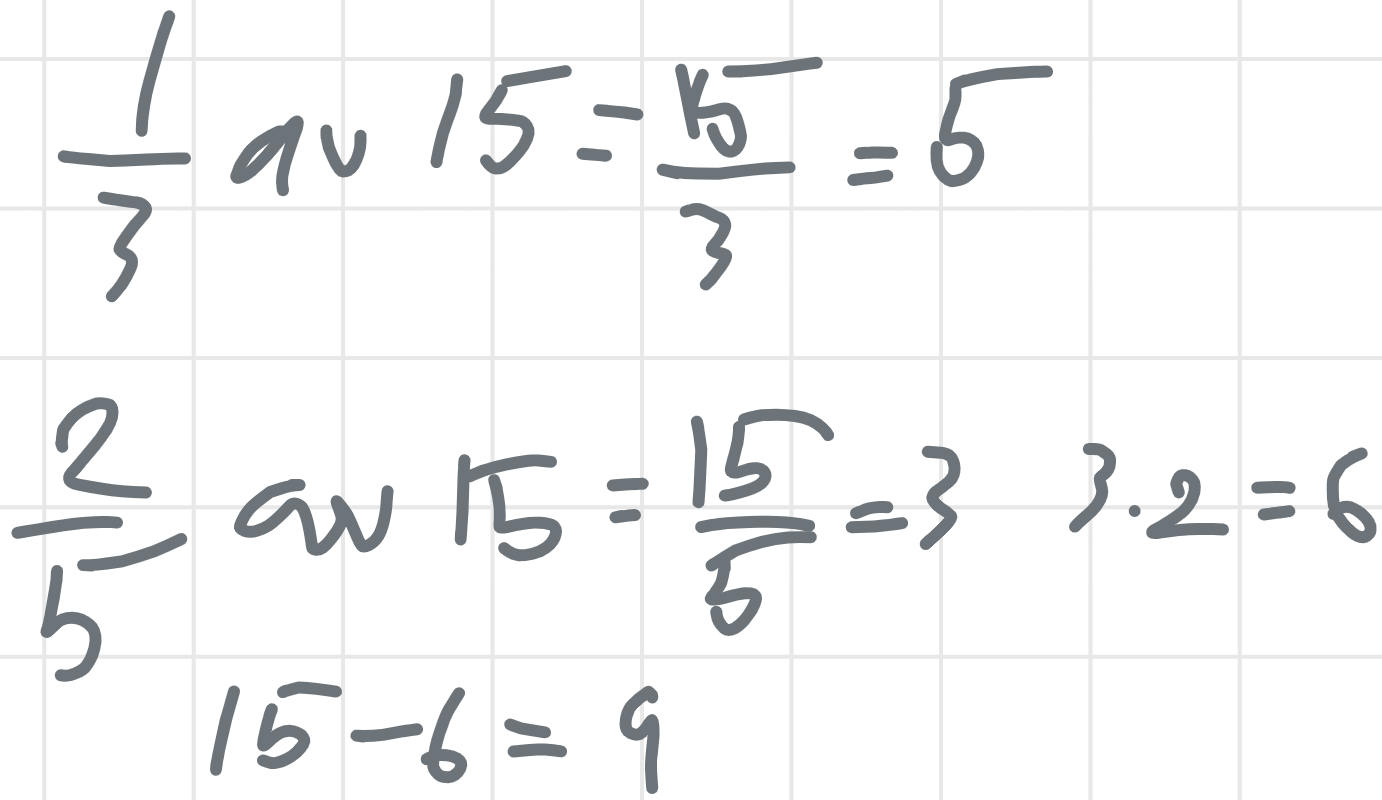 1/3 av 15 = 15/3 = 5
2/5 av 15 = 15/5 = 3 3·2 = 6
15 - 6 = 9